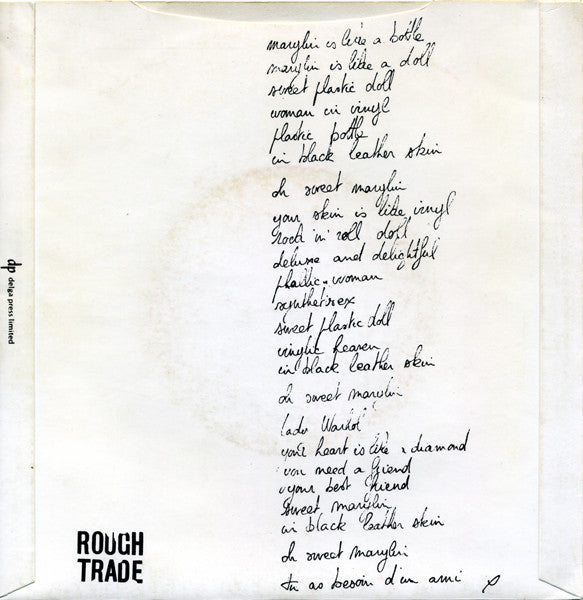 marylin is like a bottle
marylin is like a doll
sweet plastic doll
woman in vinyl
plastic bottle
in black leather skin
oh sweet marylin
your skin is like vinyl
rock 'n' roll doll
deluxe and delightful
phallic-woman
synthet's sex
sweet plastic doll
vinylic heaven
in black leather skin
oh sweet marylin
lady Warhol
your heart is like a diamond
you need a friend
your best friend
sweet marylin
in black leather skin
oh sweet marylin
tu as besoin d'un ami
dp delga press limited
ROUGH
TRADE